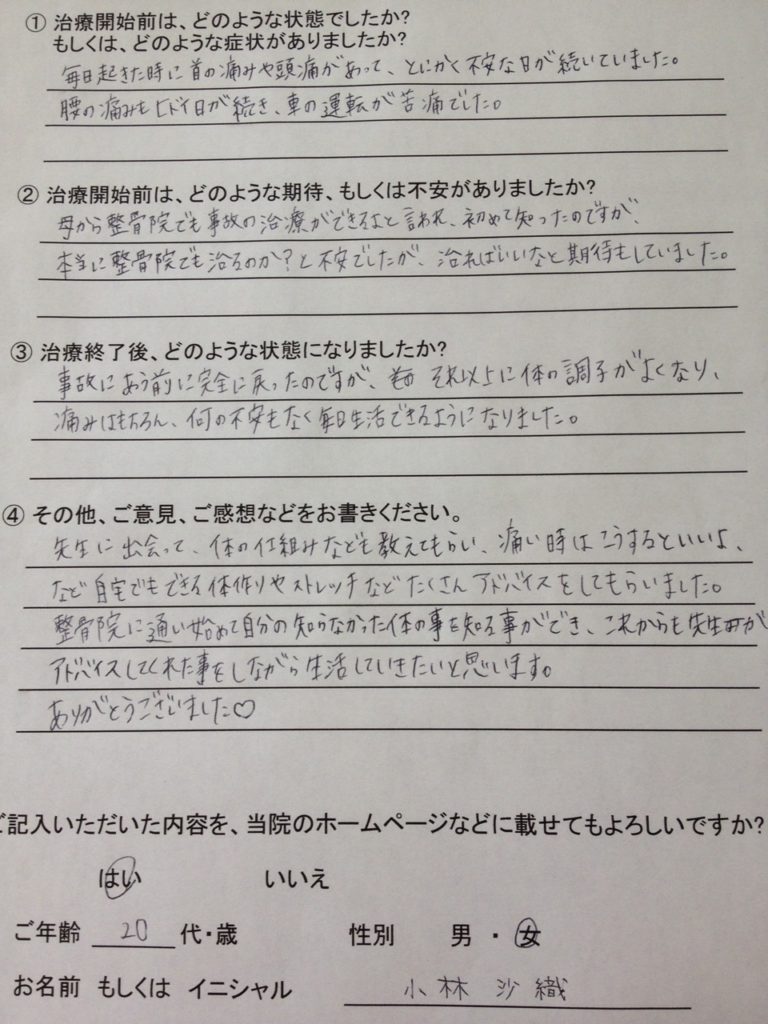 ① 治療開始前は、どのような状態でしたか?
もしくは、どのような症状がありましたか?
毎日起きた時に首の痛みや頭痛があって、とにかく不安な日が続いていました。
腰の痛みもヒドイ日が続き、車の運転が苦痛でした。
② 治療開始前は、どのような期待、もしくは不安がありましたか?
母から整骨院でも事故の治療ができるよと言われ、初めて知ったのですが、
本当に整骨院でも治るのか?と不安でしたが、治ればいいなと期待もしていました。
③ 治療終了後、どのような状態になりましたか?
事故にあう前に完全に戻ったのですが、それ以上に体の調子がよくなり、
痛みはもちろん、何の不安もなく毎日生活できるようになりました。
④ その他、ご意見、ご感想などをお書きください。
先生に出会って、体の仕組みなども教えてもらい、痛い時はこうするといいよ、
など自宅でもできる体作りやストレッチなどたくさんアドバイスをしてもらいました。
整骨院に通い始めて自分の知らなかった体の事を知る事ができ、これからも先生が
アドバイスしてくれた事をしながら生活していきたいと思います。
ありがとうございました♡
ご記入いただいた内容を、当院のホームページなどに載せてもよろしいですか?
はい いいえ
ご年齢 20 代・歳 性別 男 ・ 女
お名前 もしくは イニシャル 小林 沙織